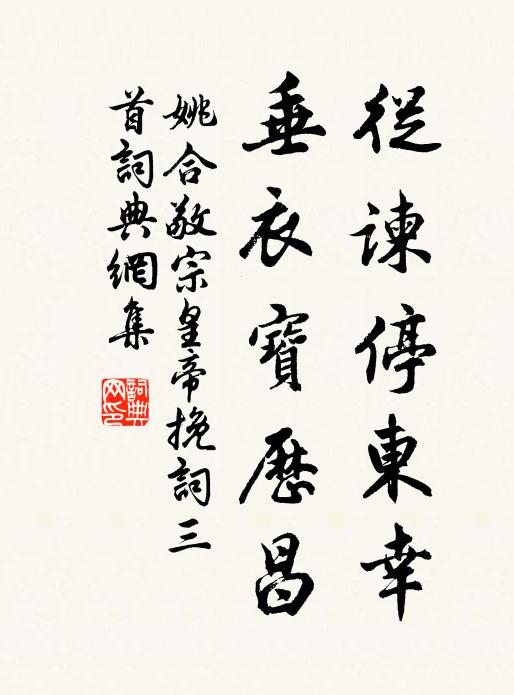 從諫停東幸
垂衣寶歷昌
姚合敬宗皇帝挽詞三
首詞典網集
詞典
网印